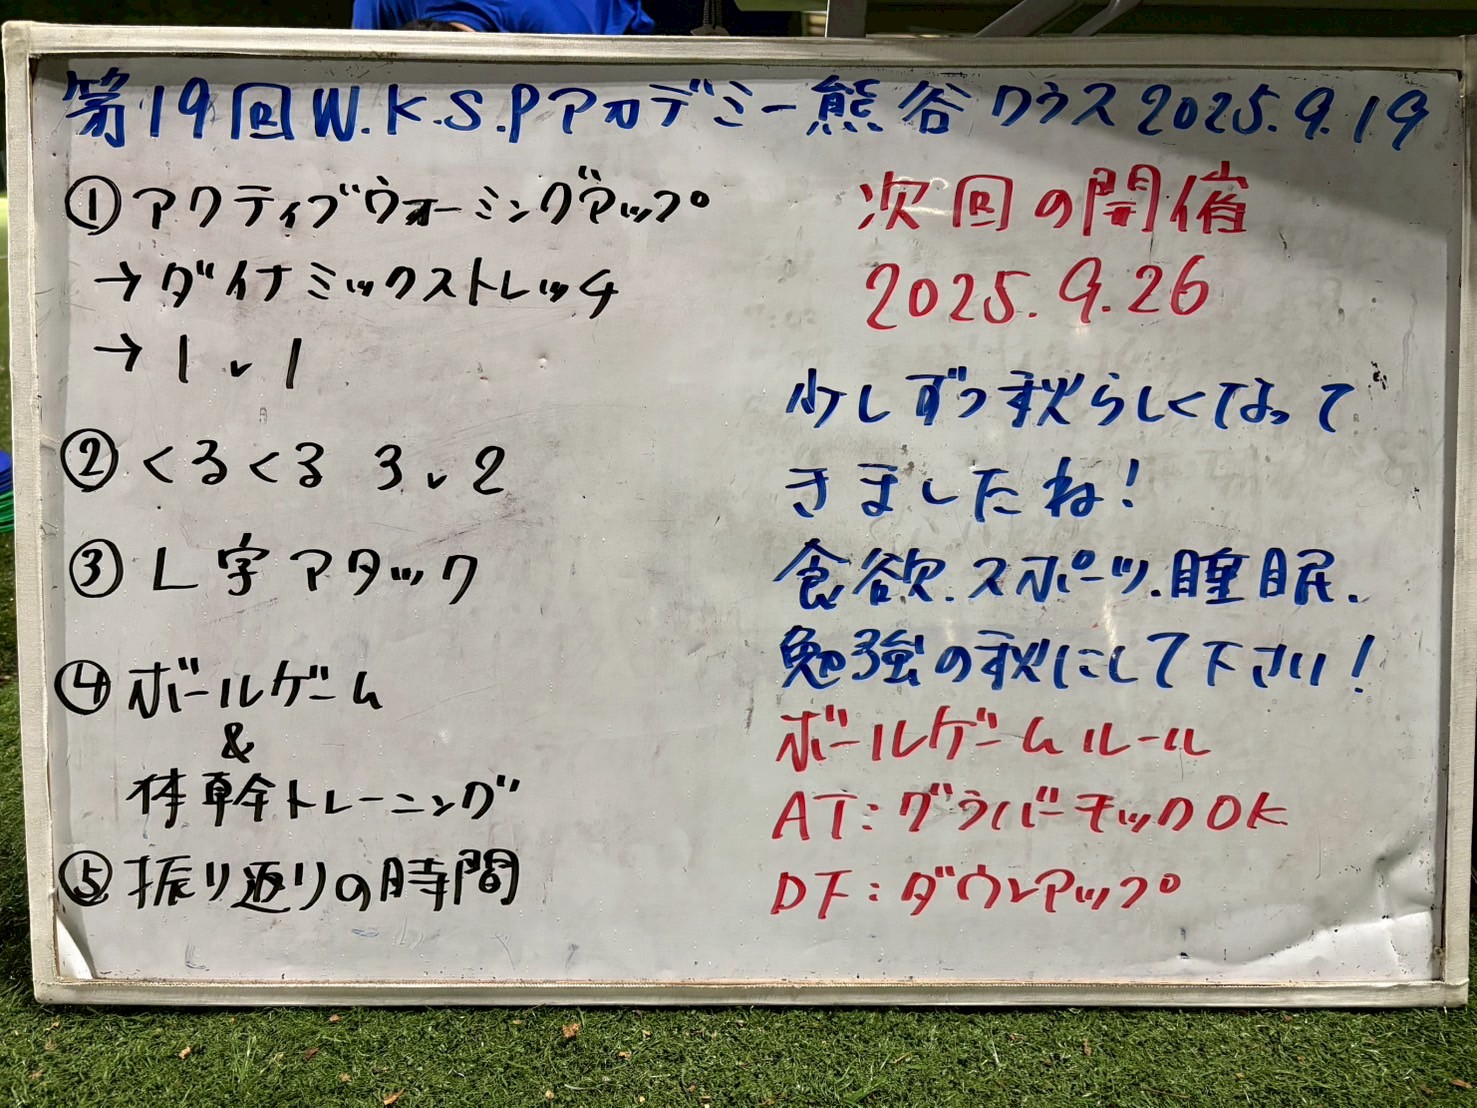 第19回W.K.S.Pアカデミー熊谷クラス2025.9.19
①アクティブウォーミングアップ
→ダイナミックストレッチ
→1v1
②くるくる 3v2
③L字アタック
④ボールゲーム
&
体幹トレーニング
⑤振り返りの時間
次回の開催
2025.9.26
少しずつ秋らしくなって
きましたね!
食欲.スポーツ.睡眠.
勉強の秋にして下さい!
ボールゲームルール
AT:グラバーキックOK
DF:ダウンアップ